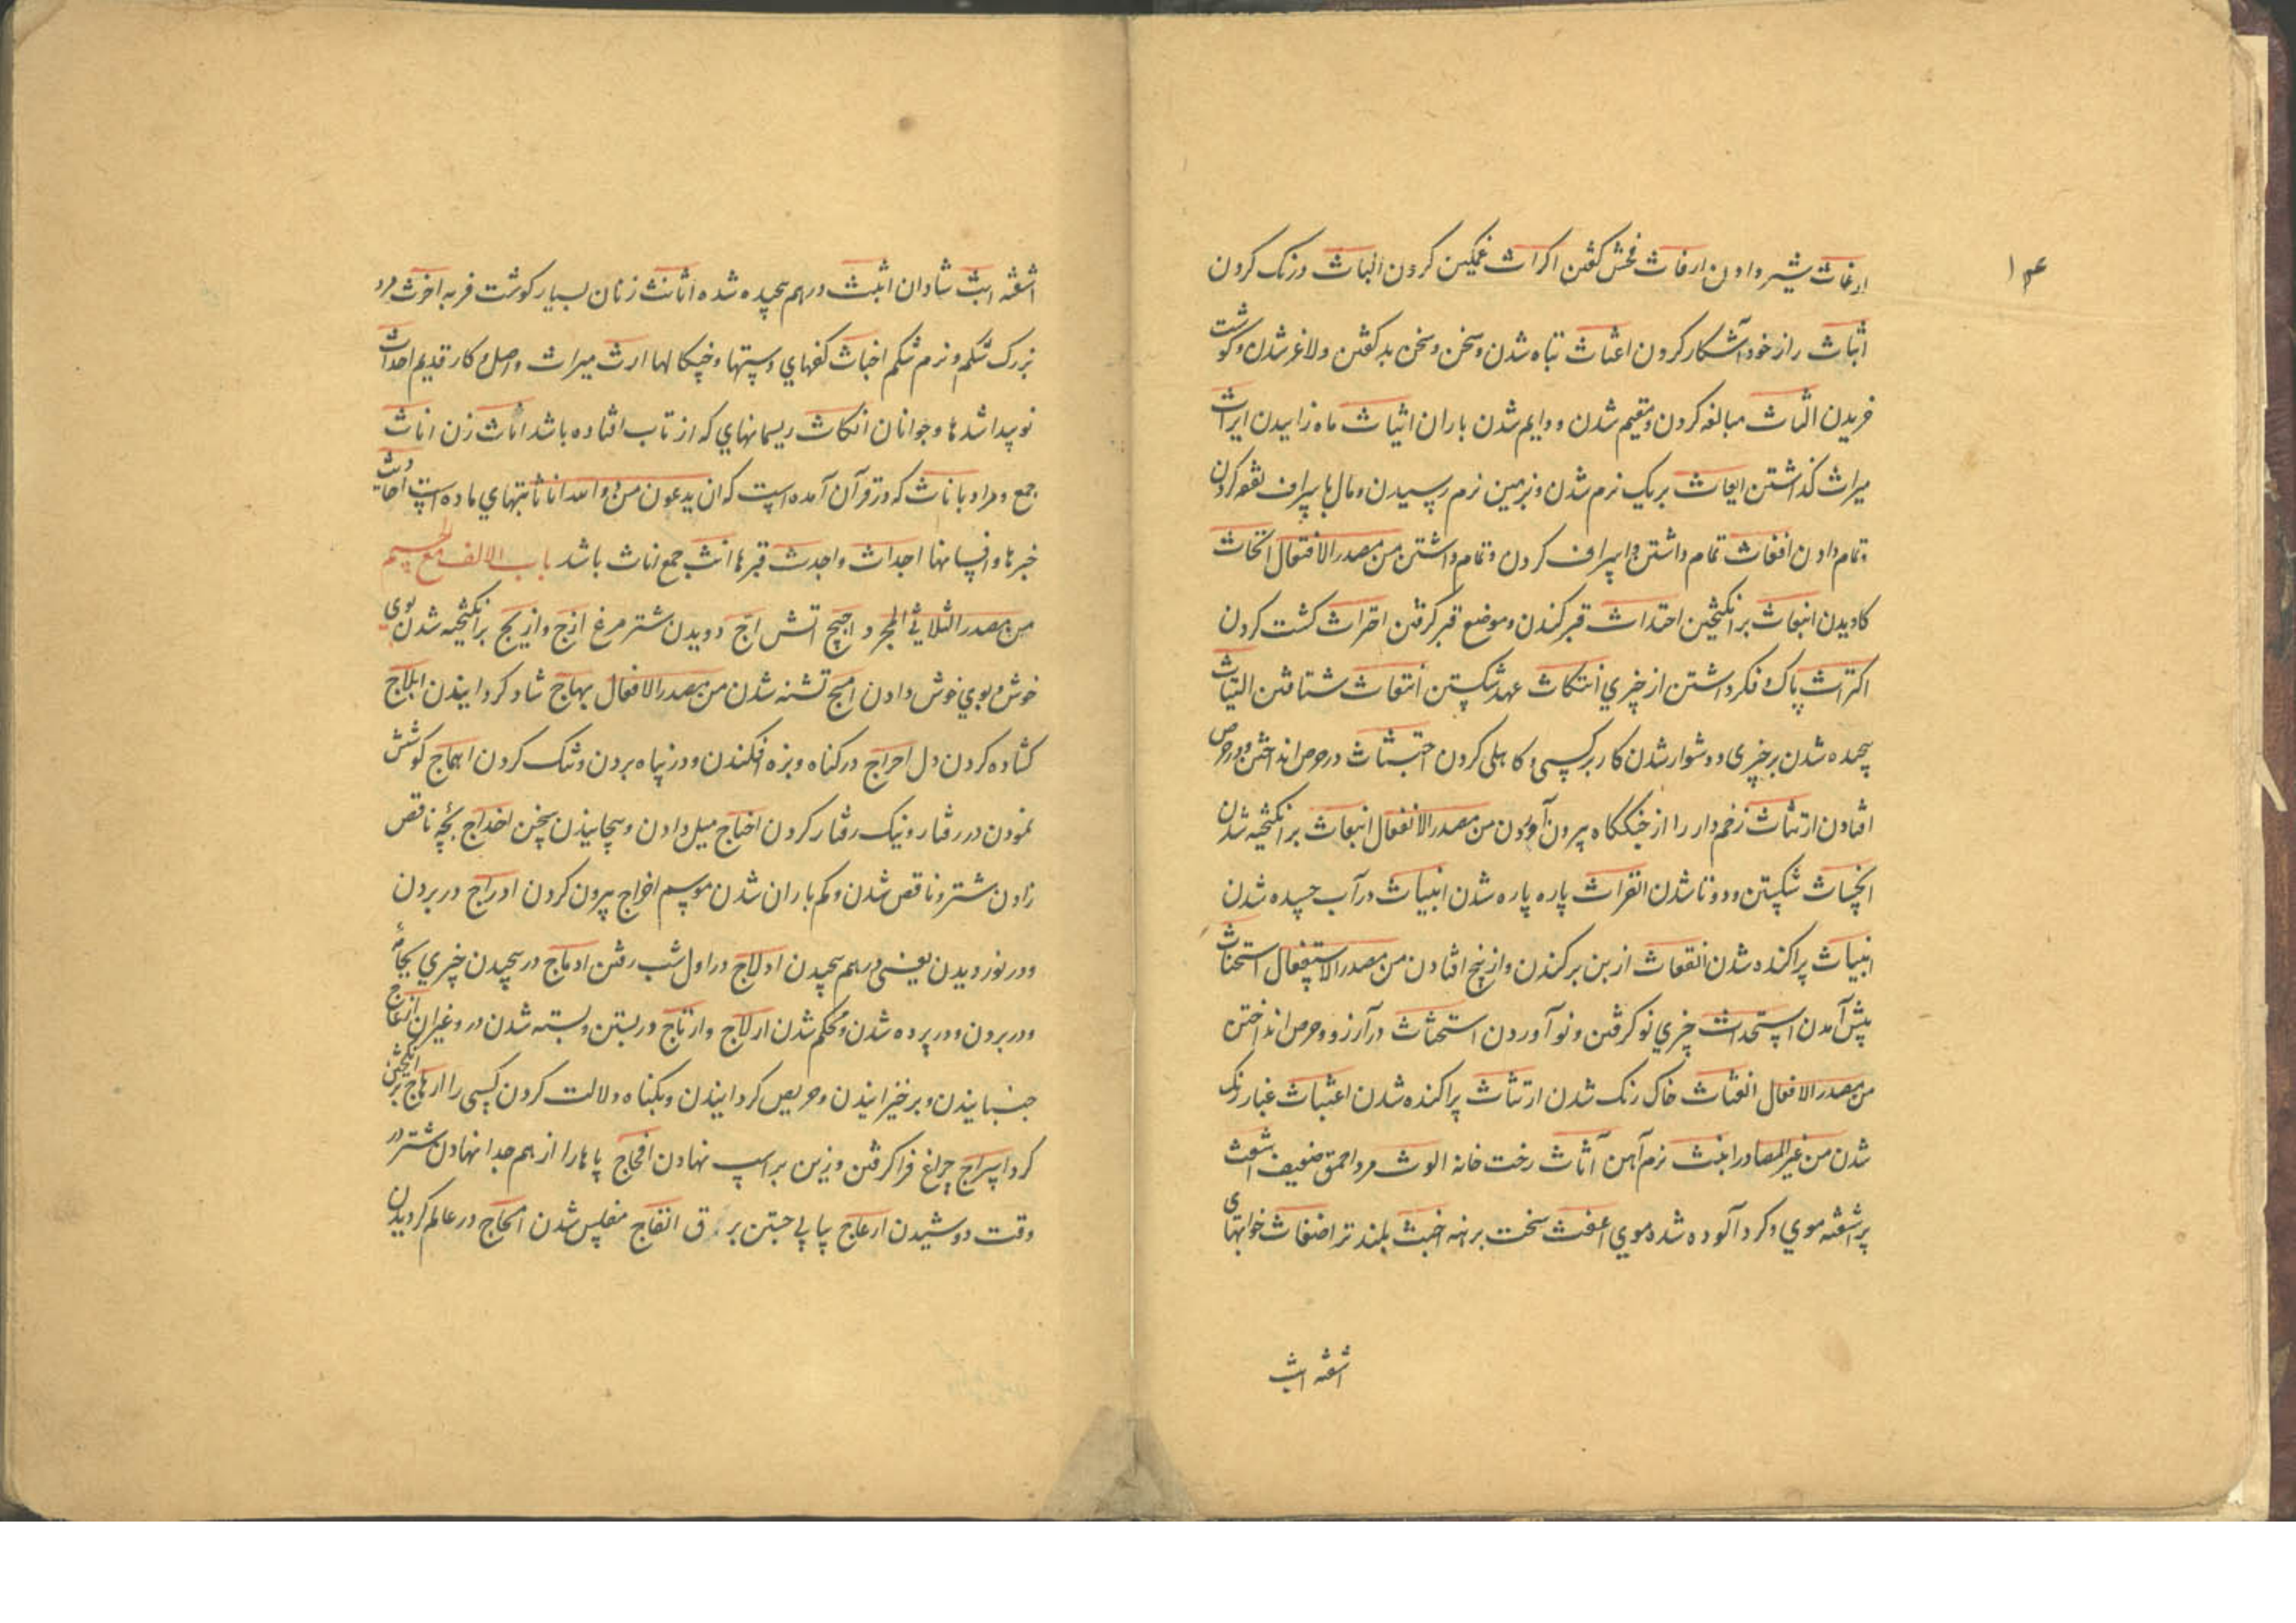 ۱۴
ارغاث شیر دادن ارفاث فحش کفتن اکراث غمکین کردن الباث درنک کردن
ابثاث راز خود آشکار کردن اغثاث تباه شدن سخن و سخن بد کفتن و لاغر شدن و کوشت
خریدن الثاث مبالغه کردن و مقیم شدن و دایم شدن باران انیاث ماده زاییدن ایراث
میراث کذاشتن ایعاث بریک نرم شدن و بزمین نرم رسیدن و مال باسراف نفقه کردن
و تمام دادن افغاث تمام داشتن و اسراف کردن و تمام داشتن من مصدر الافتعال انتحاث
کاویدن ابتعاث برانکیختن اجتداث قبر کندن و موضع قبر کرفتن احتراث کشت کردن
اکتراث باک و فکر داشتن از چیزی انتکاث عهد شکستن انتعاث شتافتن التیاث
پیچیده شدن بر چیزی و دشوار شدن کار بر کسی و کاهلی کردن احتثاث در حرص انداختن و در حرص
افتادن ارتثاث زخم دار را از جنک کاه بیرون آوردن من مصدر الانفعال انبعاث برانکیخته شدن
انخناث شکستن و دوتا شدن انفراث پاره پاره شدن انمیاث در آب حسیده شدن
انبثاث پراکنده شدن انقعاث از بن برکندن و از بیخ افتادن من مصدر الاستفعال استحناث
پیش آمدن استحداث چیزی نو کرفتن و نو آوردن استحثاث در آرزو و حرص انداختن
من مصدر الافعلال اغثاث خاک رنک شدن ارتثاث پراکنده شدن اغبثاث غبار رنک
شدن من غیر المصادر انیث نرم آهن اثاث رخت خانه الوث مرد احمق ضعیف اشعث
پراشفته موی و کرد آلوده شده موی اعفث سخت برهنه اخبث پلیدتر اضغاث خوابهای
اشفته ابث
اشفته ابث شادان انبث درهم پیچیده شده اثانث زنان بسیار کوشت فربه اخوث مرد
بزرک شکم و نرم شکم اخباث کفهای دستها و چنکالها ارث میراث و اصل و کار قدیم احداث
نو پیدا شدها و جوانان انکاث ریسمانهای که از تاب افتاده باشد اناث زن اناث
جمع و مراد باناث که در قرآن آمده است که ان یدعون من دونه الا اناثا بتهای ماده است احادیث
خبرها و افسانها اجداث واجدث قبرها انث جمع اناث باشد باب الالف مع الجیم
من مصدر الثلاثی المجرد اجیج اتش اج دویدن شتر مرغ ازج و ازیج برانکیخته شدن بوی
خوش و بوی خوش دادن امج تشنه شدن من مصدر الافعال ابهاج شاد کردانیدن ابلاج
کشاده کردن دل احراج در کناه و بزه افکندن و در پناه بردن و تنک کردن اهماج کوشش
نمودن در رفتار و نیک رفتار کردن اخناج میل دادن و پیچانیدن سخن اخداج بچهٔ ناقص
زادن شتر و ناقص شدن و کم باران شدن موسم اخراج بیرون کردن ادراج در بردن
و در نوردیدن یعنی درهم پیچیدن ادلاج در اول شب رفتن ادماج در پیچیدن چیزی بجامه
و در بردن و در پرده شدن و محکم شدن ارلاج و ارتاج در بستن و بسته شدن در و غیر ان ازعاج
جنبانیدن و برخیزانیدن و حریص کردانیدن و بکناه دلالت کردن کسی را ارهاج برانکیختن
کرد اسراج چراغ فرا کرفتن و زین بر اسب نهادن افحاج پاها را از هم جدا نهادن شتر در
وقت دوشیدن ارعاج پیاپی جستن برق انفاج مفلس شدن امحاج در عالم کردیدن